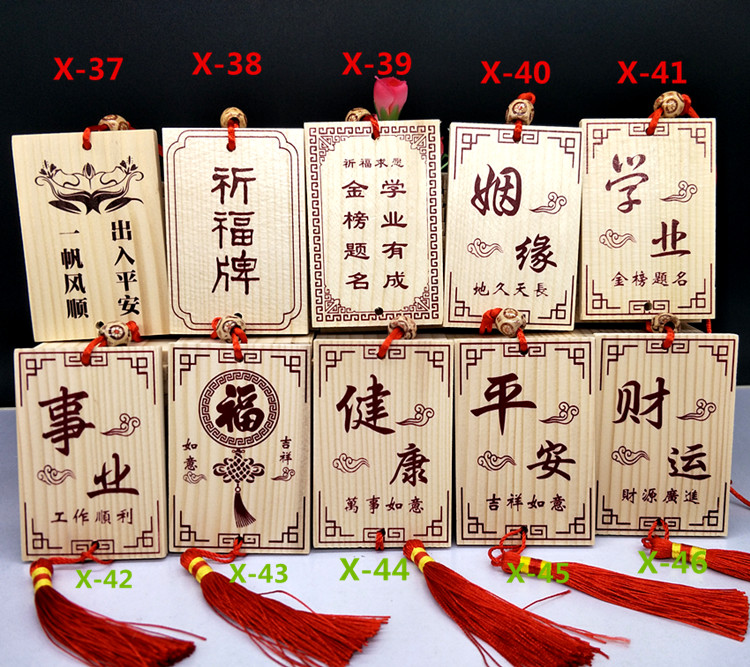 X-37
出入平安
一帆风顺
X-38
祈福牌
X-39
祈福
学业有成
金榜题名
X-40
姻缘
地久天長
X-41
学业
金榜題名
事业
工作順利
X-42
福
吉祥
如意
X-43
健康
萬事如意
X-44
平安
吉祥如意
X-45
财运
財源廣進
X-46